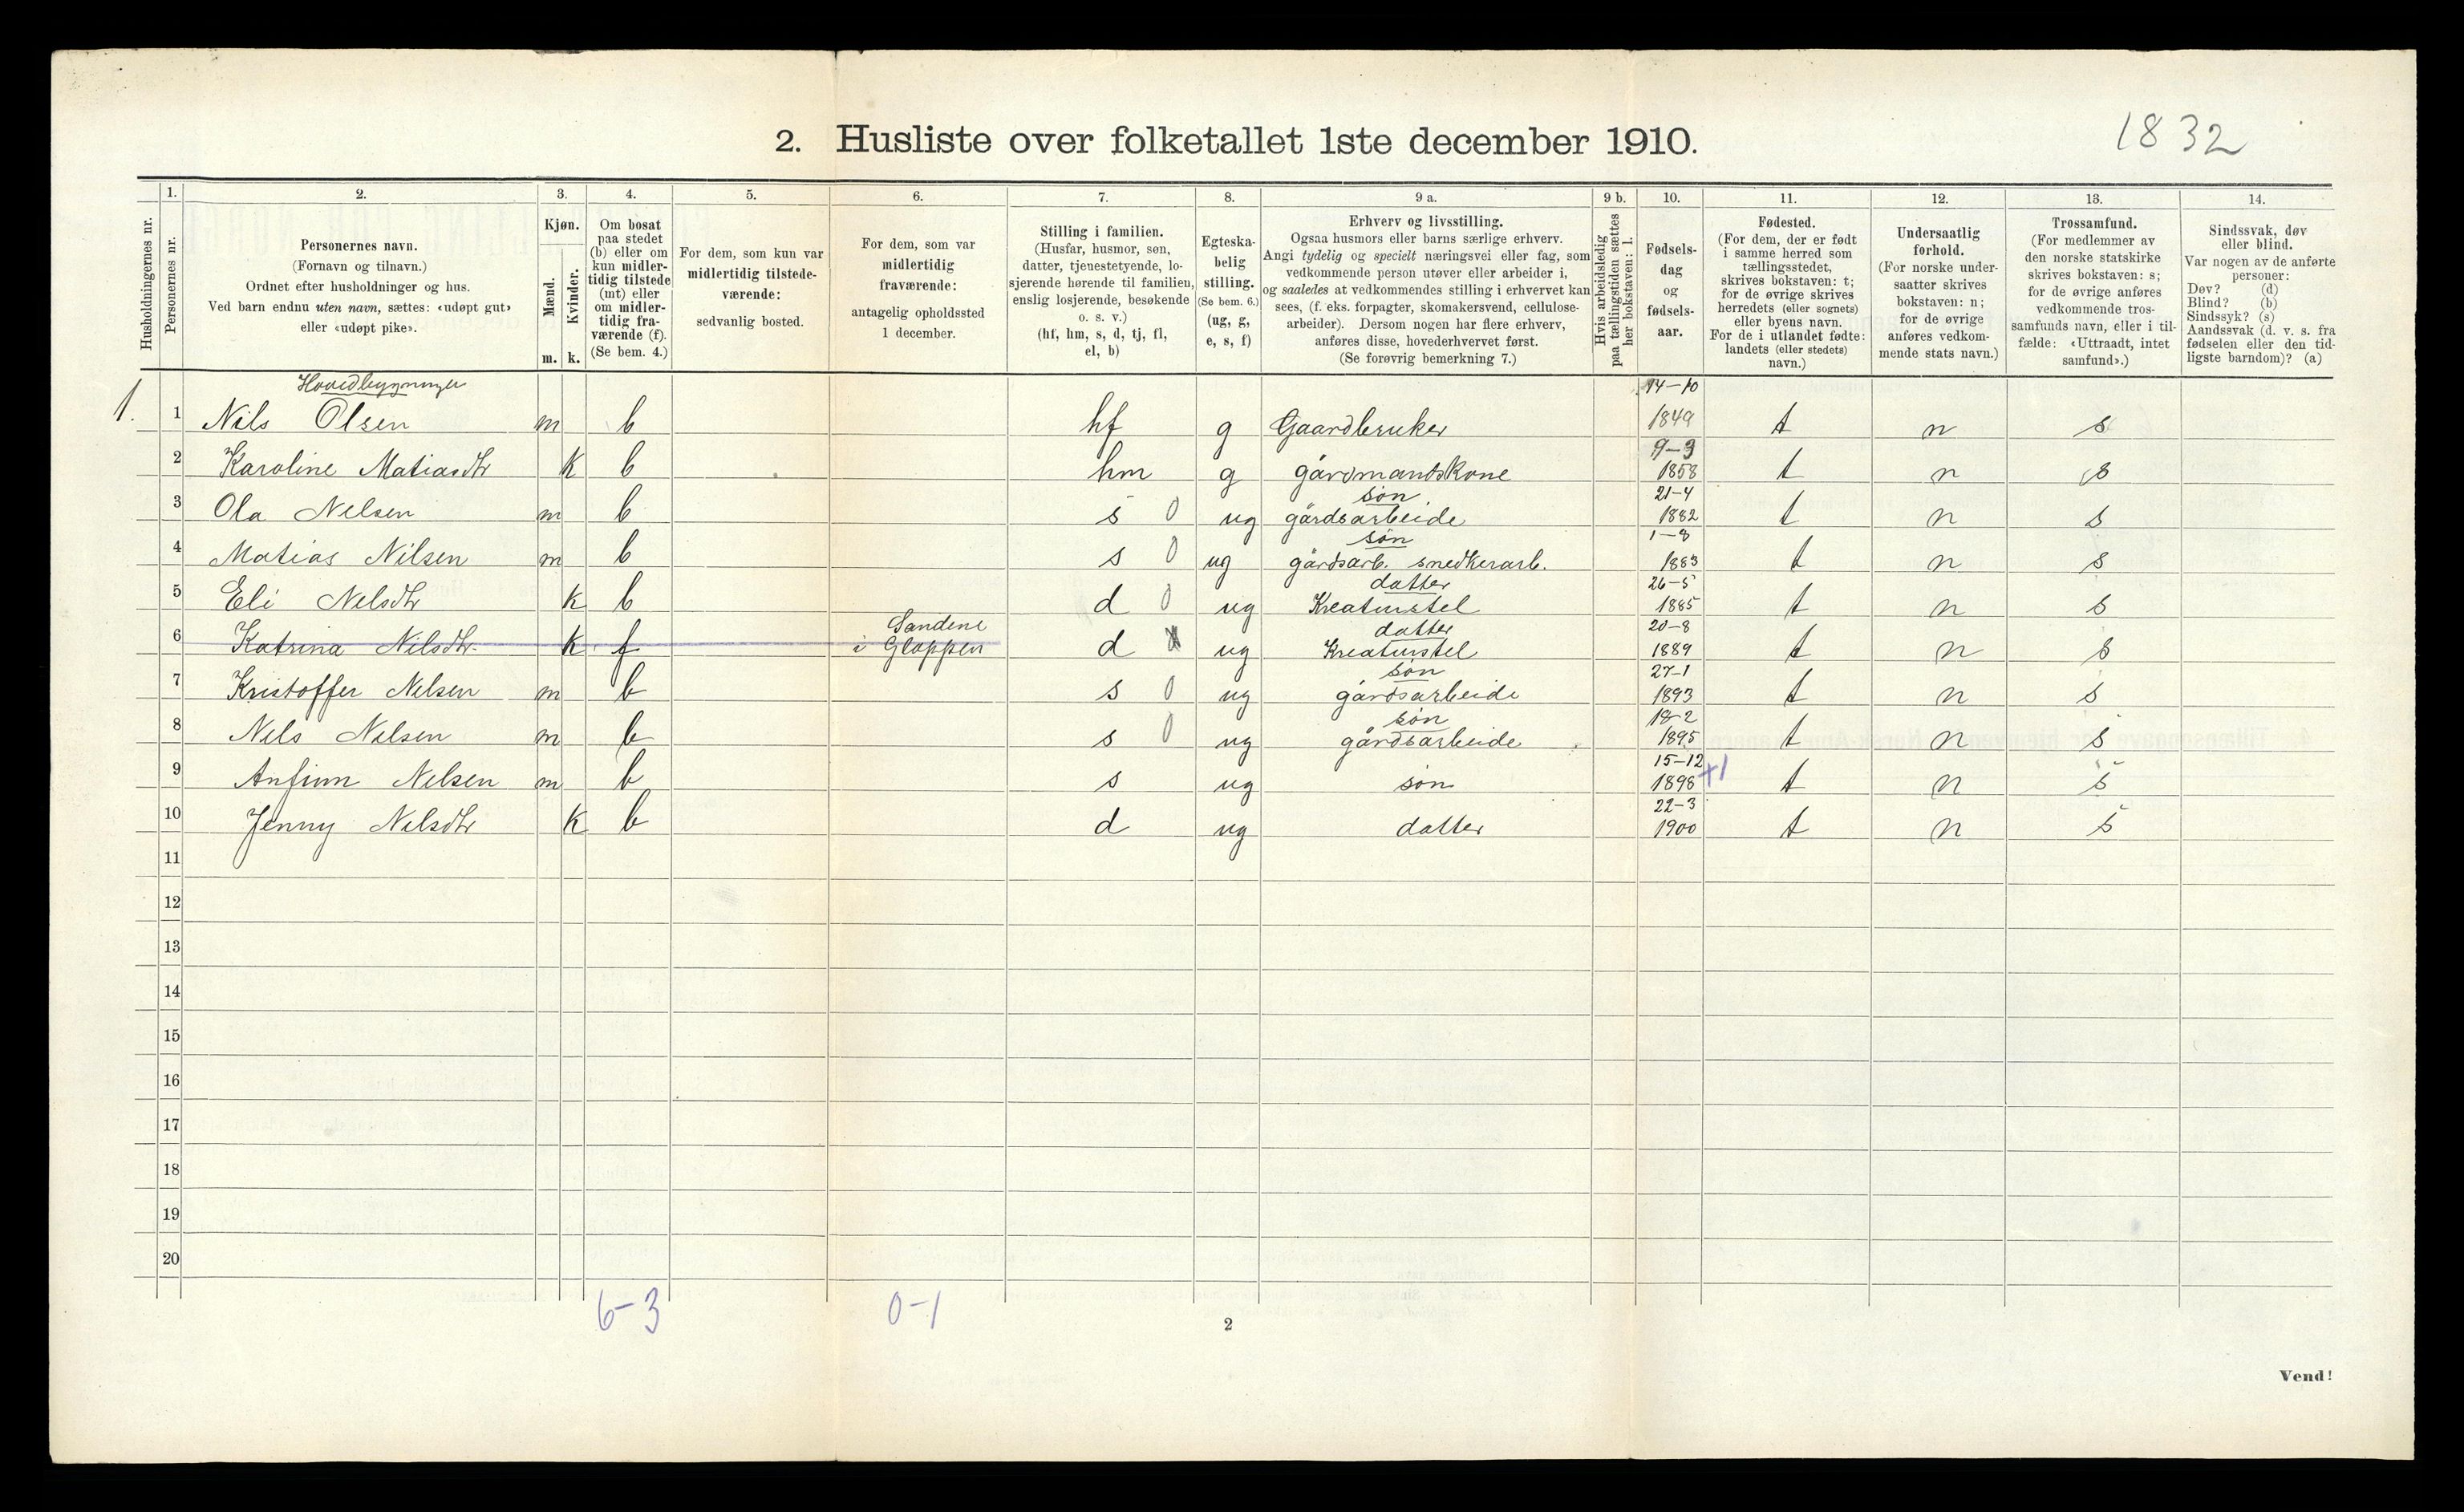 1832
2. Husliste over folketallet 1ste december 1910.
Husholdningernes nr.
1.
Personernes nr.
2.
Personernes navn.
(Fornavn og tilnavn.)
Ordnet efter husholdninger og hus.
Ved barn endnu uten navn, sættes: «udøpt gut»
eller «udøpt pike».
3.
Kjøn.
Mænd.
Kvinder.
m. k.
4.
Om bosat
paa stedet
(b) eller om
kun midler-
tidig tilstede
(mt) eller
om midler-
tidig fra-
værende (f).
(Se bem. 4.)
5.
For dem, som kun var
midlertidig tilstede-
værende:
sedvanlig bosted.
6.
For dem, som var
midlertidig
fraværende:
antagelig opholdssted
1 december.
7.
Stilling i familien.
(Husfar, husmor, søn,
datter, tjenestetyende, lo-
sjerende hørende til familien,
enslig losjerende, besøkende
o. s. v.)
(hf, hm, s, d, tj, fl,
el, b)
8.
Egteska-
belig
stilling.
(Se bem. 6.)
(ug, g,
e, s, f)
9 a.
Erhverv og livsstilling.
Ogsaa husmors eller barns særlige erhverv.
Angi tydelig og specielt næringsvei eller fag, som
vedkommende person utøver eller arbeider i,
og saaledes at vedkommendes stilling i erhvervet kan
sees, (f. eks. forpagter, skomakersvend, cellulose-
arbeider). Dersom nogen har flere erhverv,
anføres disse, hovederhvervet først.
(Se forøvrig bemerkning 7.)
9 b.
Hvis arbeidsledig
paa tællingstiden sættes
her bokstaven: l.
10.
Fødsels-
dag
og
fødsels-
aar.
11.
Fødested.
(For dem, der er født
i samme herred som
tællingsstedet,
skrives bokstaven: t;
for de øvrige skrives
herredets (eller sognets)
eller byens navn.
For de i utlandet fødte:
landets (eller stedets)
navn.)
12.
Undersaatlig
forhold.
(For norske under-
saatter skrives
bokstaven: n;
for de øvrige
anføres vedkom-
mende stats navn.)
13.
Trossamfund.
(For medlemmer av
den norske statskirke
skrives bokstaven: s;
for de øvrige anføres
vedkommende tros-
samfunds navn, eller i til-
fælde: «Uttraadt, intet
samfund».)
14.
Sindssvak, døv
eller blind.
Var nogen av de anførte
personer:
Døv? (d)
Blind? (b)
Sindssyk? (s)
Aandssvak (d. v. s. fra
fødselen eller den tid-
ligste barndom)? (a)
Hovedbygninger 14-10
1. 1 Nils Olsen m b hf g Gaardbruker 1849 t n s
9-3
2 Karoline Matiasdtr k b hm g gårdmandskone 1858 t n s
søn 21-4
3 Ola Nelsen m b s 0 ug gårdsarbeide 1882 t n s
søn 1-8
4 Matias Nilsen m b s 0 ug gårdsarb. snedkerarb. 1883 t n s
datter 26-5
5 Eli Nelsdtr k b d 0 ug Kreaturstel 1885 t n s
Sandene datter 20-8
6 Katrina Nilsdtr. k f i Gloppen d ug Kreaturstel 1889 t n s
søn 27-1
7 Kristoffer Nelsen m b s 0 ug gårdsarbeide 1893 t n s
søn 18-2
8 Nels Nelsen m b s 0 ug gårdsarbeide 1895 t n s
15-12
9 Anfinn Nelsen m b s ug søn 1898 +1 t n s
22-3
10 Jenny Nelsdtr k b d ug datter 1900 t n s
11
12
13
14
15
16
17
18
19
20
6-3 0-1
2
Vend!